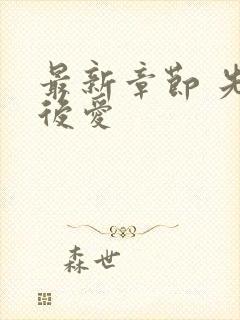 最新章節 先
後愛
森世